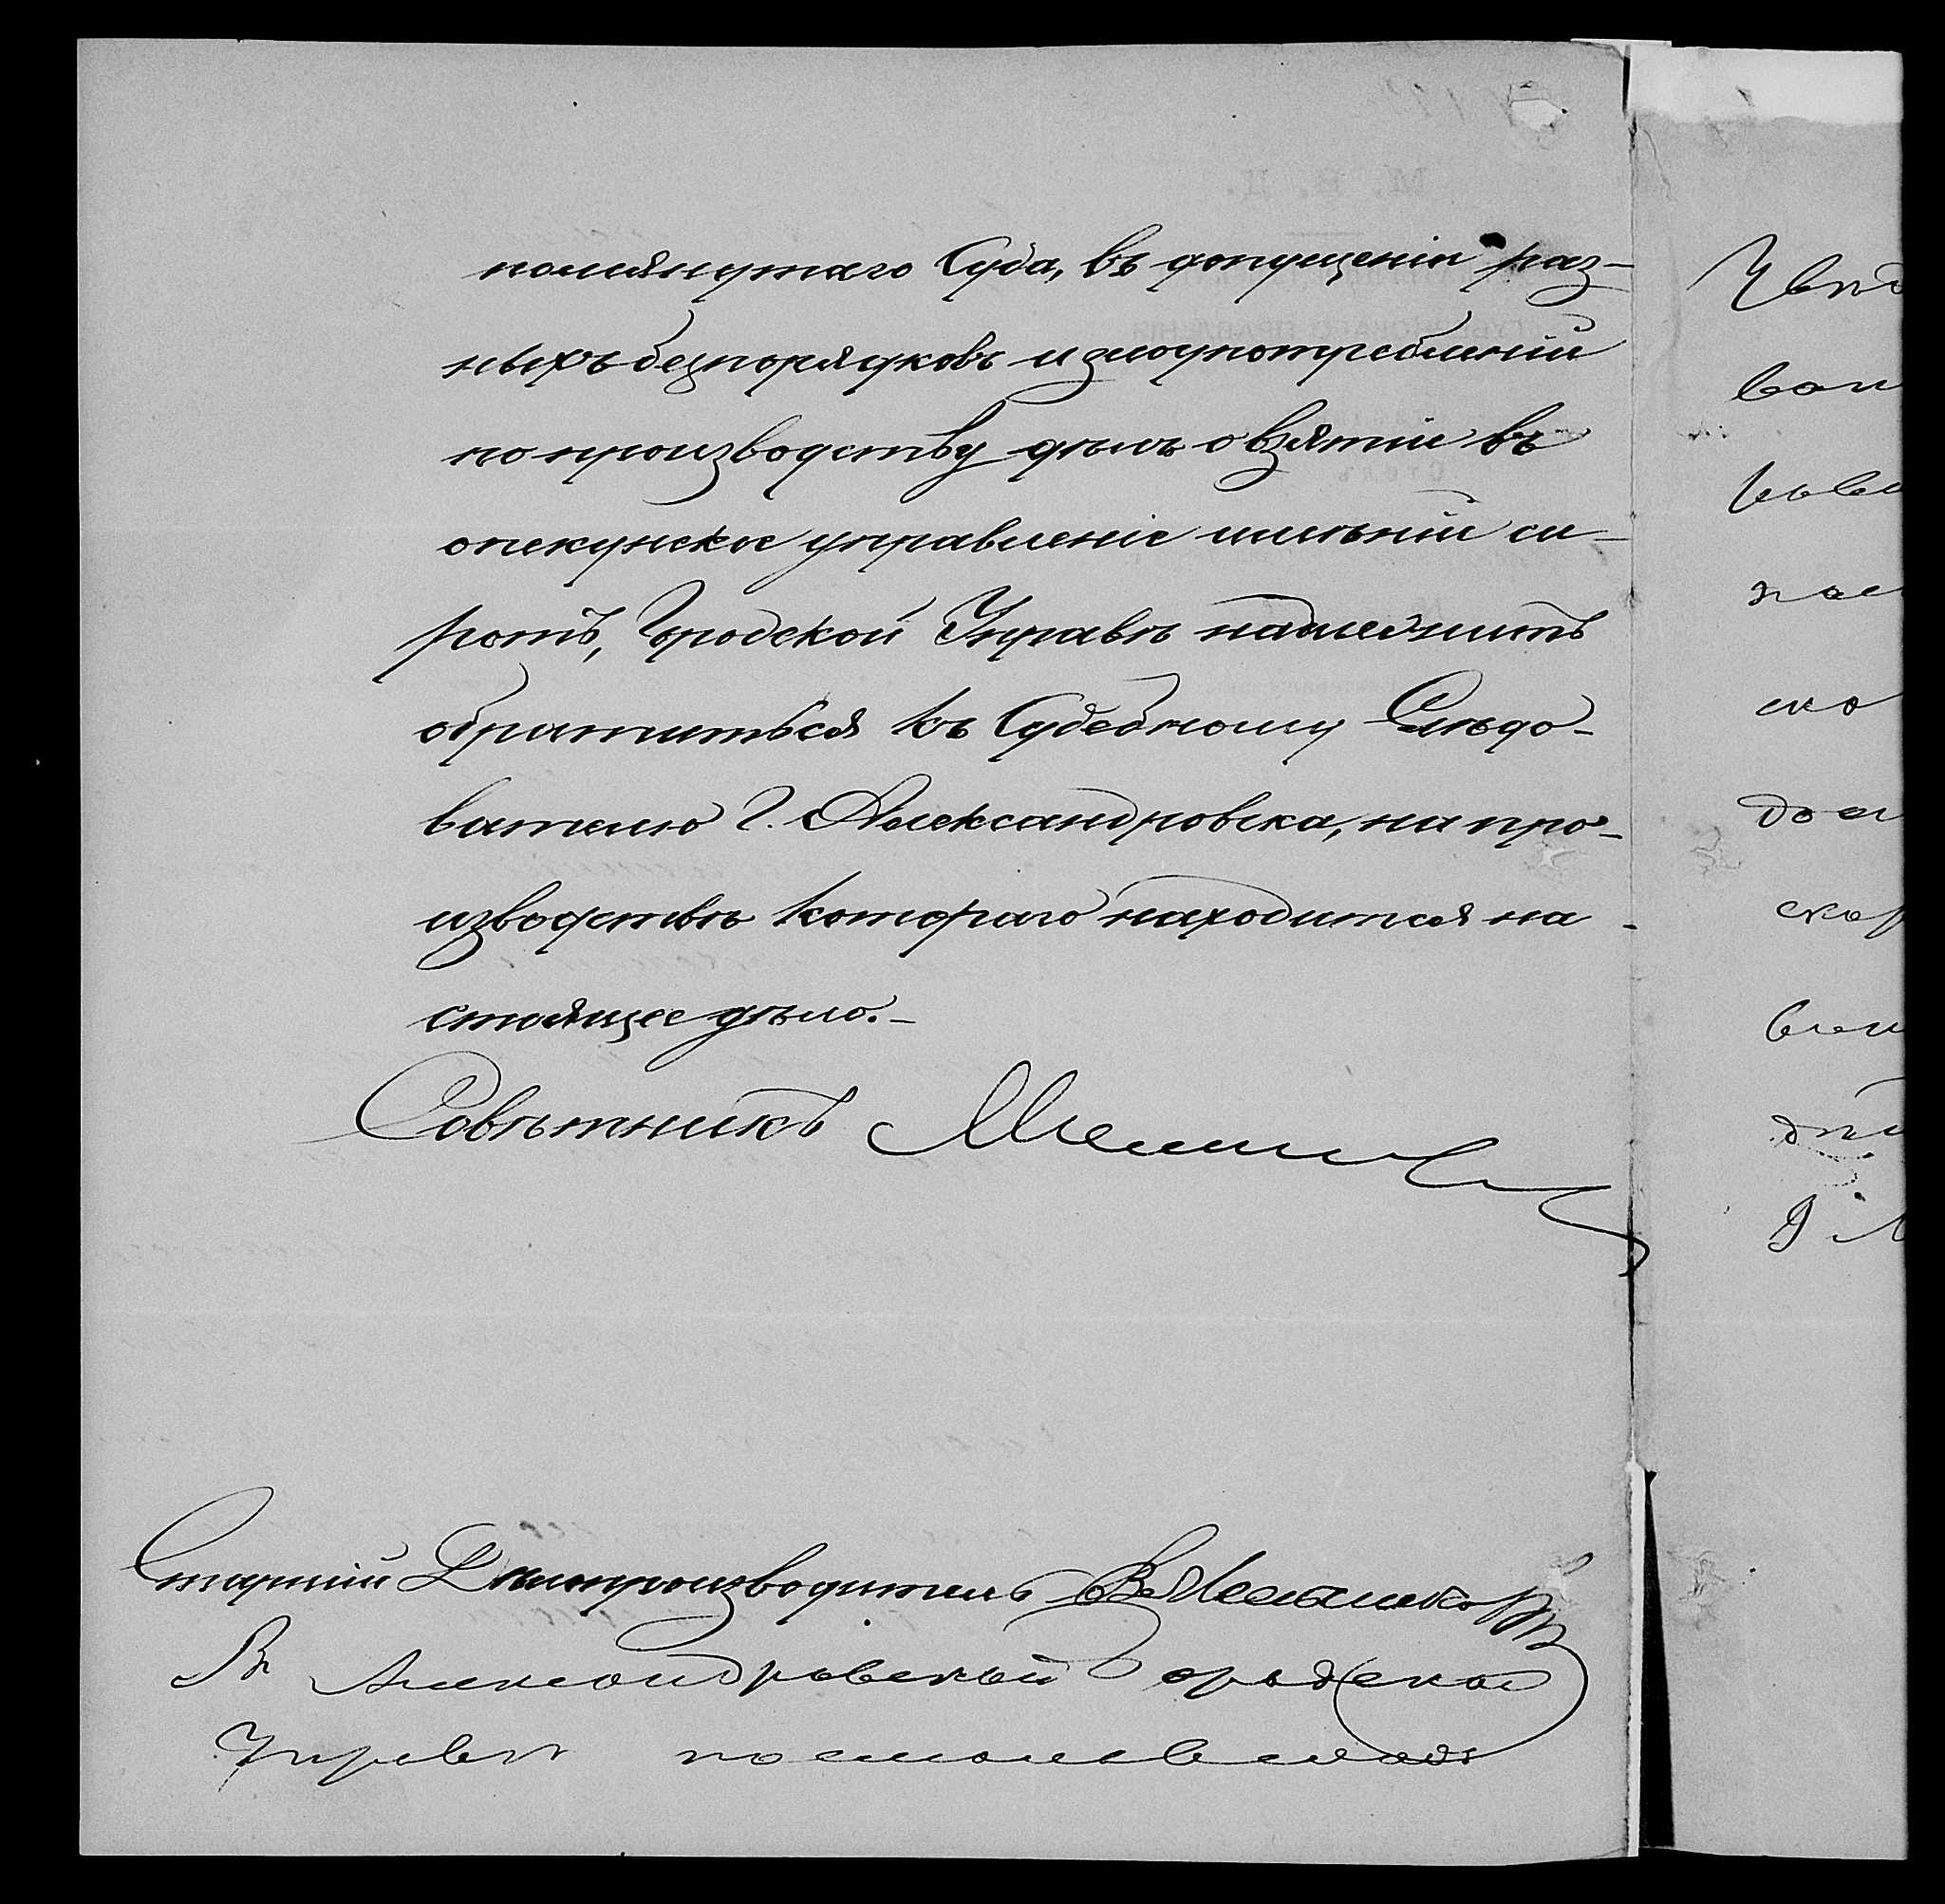 помянутаго Суда, въ допущеніи раз-
ныхъ безпорядковъ и злоупотребленій
по производству дѣлъ о взятіи въ
опекунское управленіе имѣній си-
ротъ, Городской Управѣ надлежитъ
обратиться къ Судебному Слѣдо-
вателю г. Александровска, на про-
изводствѣ котораго находится на-
стоящее дѣло.-
Совѣтникъ
Старшій Дѣлопроизводитель
В Александровской Городской
Управѣ